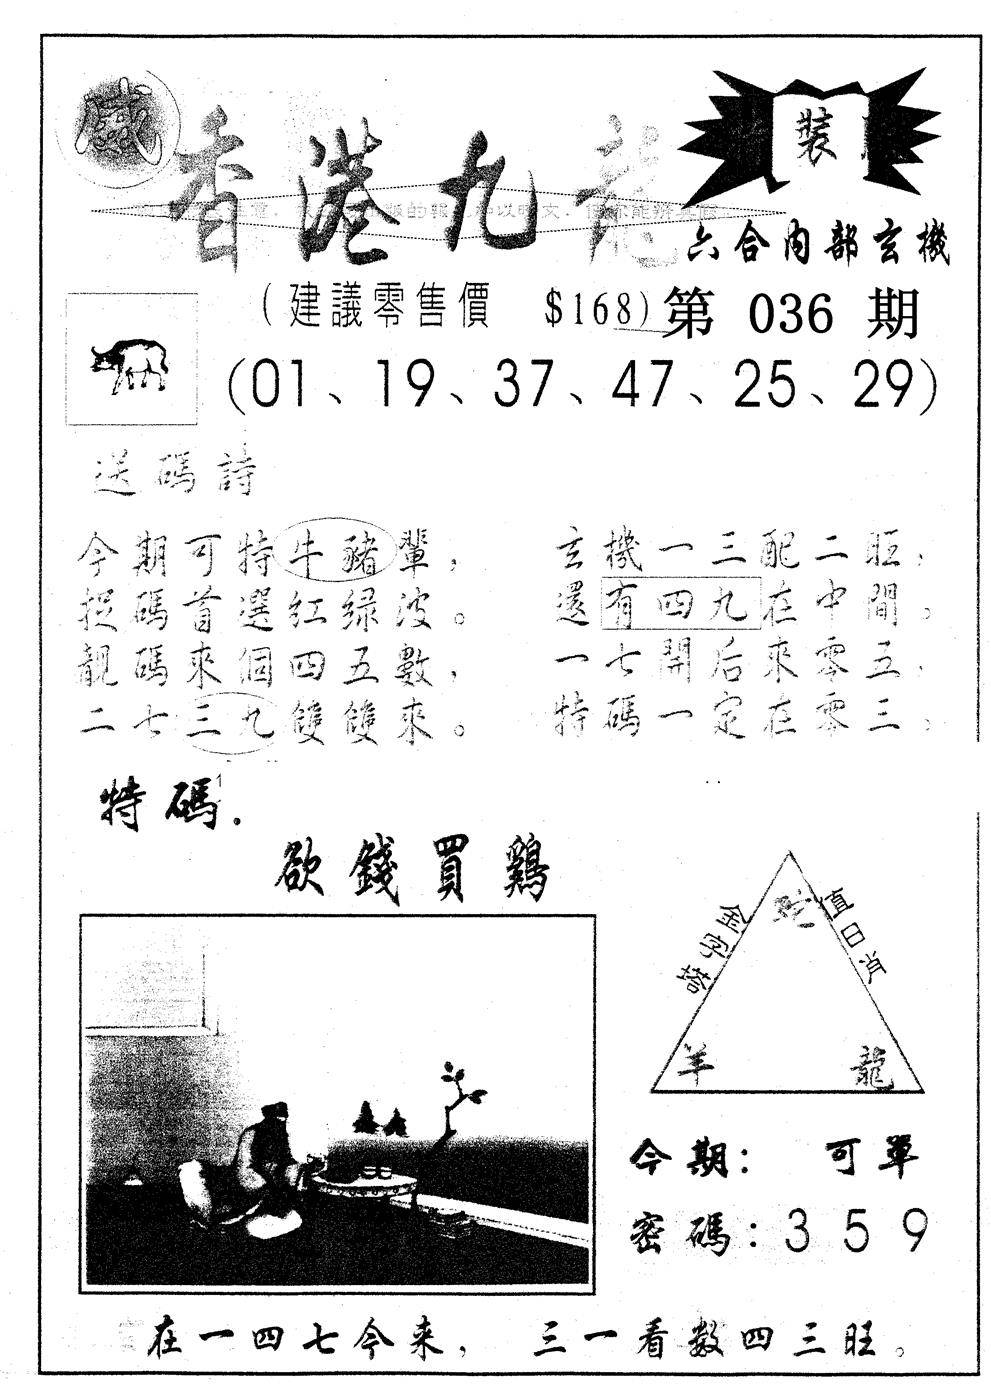 香港九龍
裝
的報 以 文．
六合內部玄機
(建議零售價 $168) 第 036 期
(01、19、37、47、25、29)
送碼詩
今期可特牛豬輩，
捉碼首選红绿波。
靚碼來個四五數，
二七三九雙雙來。
玄機一三配二旺，
還有四九在中間。
一七開后來零五，
特碼一定在零三。
特碼.
欲錢買鷄
金字塔
值日肖
蛇
羊
龍
今期： 可單
密碼：3 5 9
在一四七今来， 三一看数四三旺。